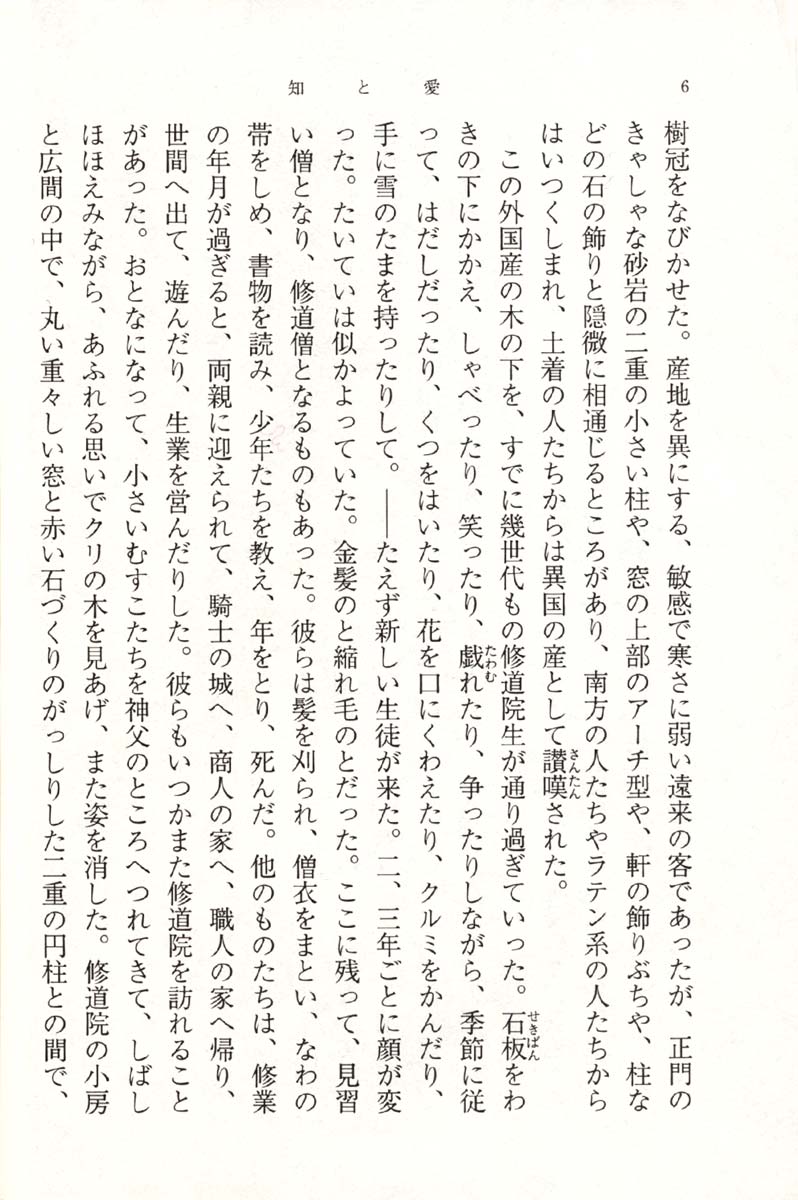 6
知と愛
樹冠をなびかせた。産地を異にする、敏感で寒さに弱い遠来の客であったが、正門の
きゃしゃな砂岩の二重の小さい柱や、窓の上部のアーチ型や、軒の飾りぶちや、柱な
どの石の飾りと隠微に相通じるところがあり、南方の人たちやラテン系の人たちから
はいつくしまれ、土着の人たちからは異国の産として讃嘆さんたんされた。
この外国産の木の下を、すでに幾世代もの修道院生が通り過ぎていった。石板せきばんをわ
きの下にかかえ、しゃべったり、笑ったり、戯たわむれたり、争ったりしながら、季節に従
って、はだしだったり、くつをはいたり、花を口にくわえたり、クルミをかんだり、
手に雪のたまを持ったりして。――たえず新しい生徒が来た。二、三年ごとに顔が変
った。たいていは似かよっていた。金髪のと縮れ毛のとだった。ここに残って、見習
い僧となり、修道僧となるものもあった。彼らは髪を刈られ、僧衣をまとい、なわの
帯をしめ、書物を読み、少年たちを教え、年をとり、死んだ。他のものたちは、修業
の年月が過ぎると、両親に迎えられて、騎士の城へ、商人の家へ、職人の家へ帰り、
世間へ出て、遊んだり、生業を営んだりした。彼らもいつかまた修道院を訪れること
があった。おとなになって、小さいむすこたちを神父のところへつれてきて、しばし
ほほえみながら、あふれる思いでクリの木を見あげ、また姿を消した。修道院の小房
と広間の中で、丸い重々しい窓と赤い石づくりのがっしりした二重の円柱との間で、